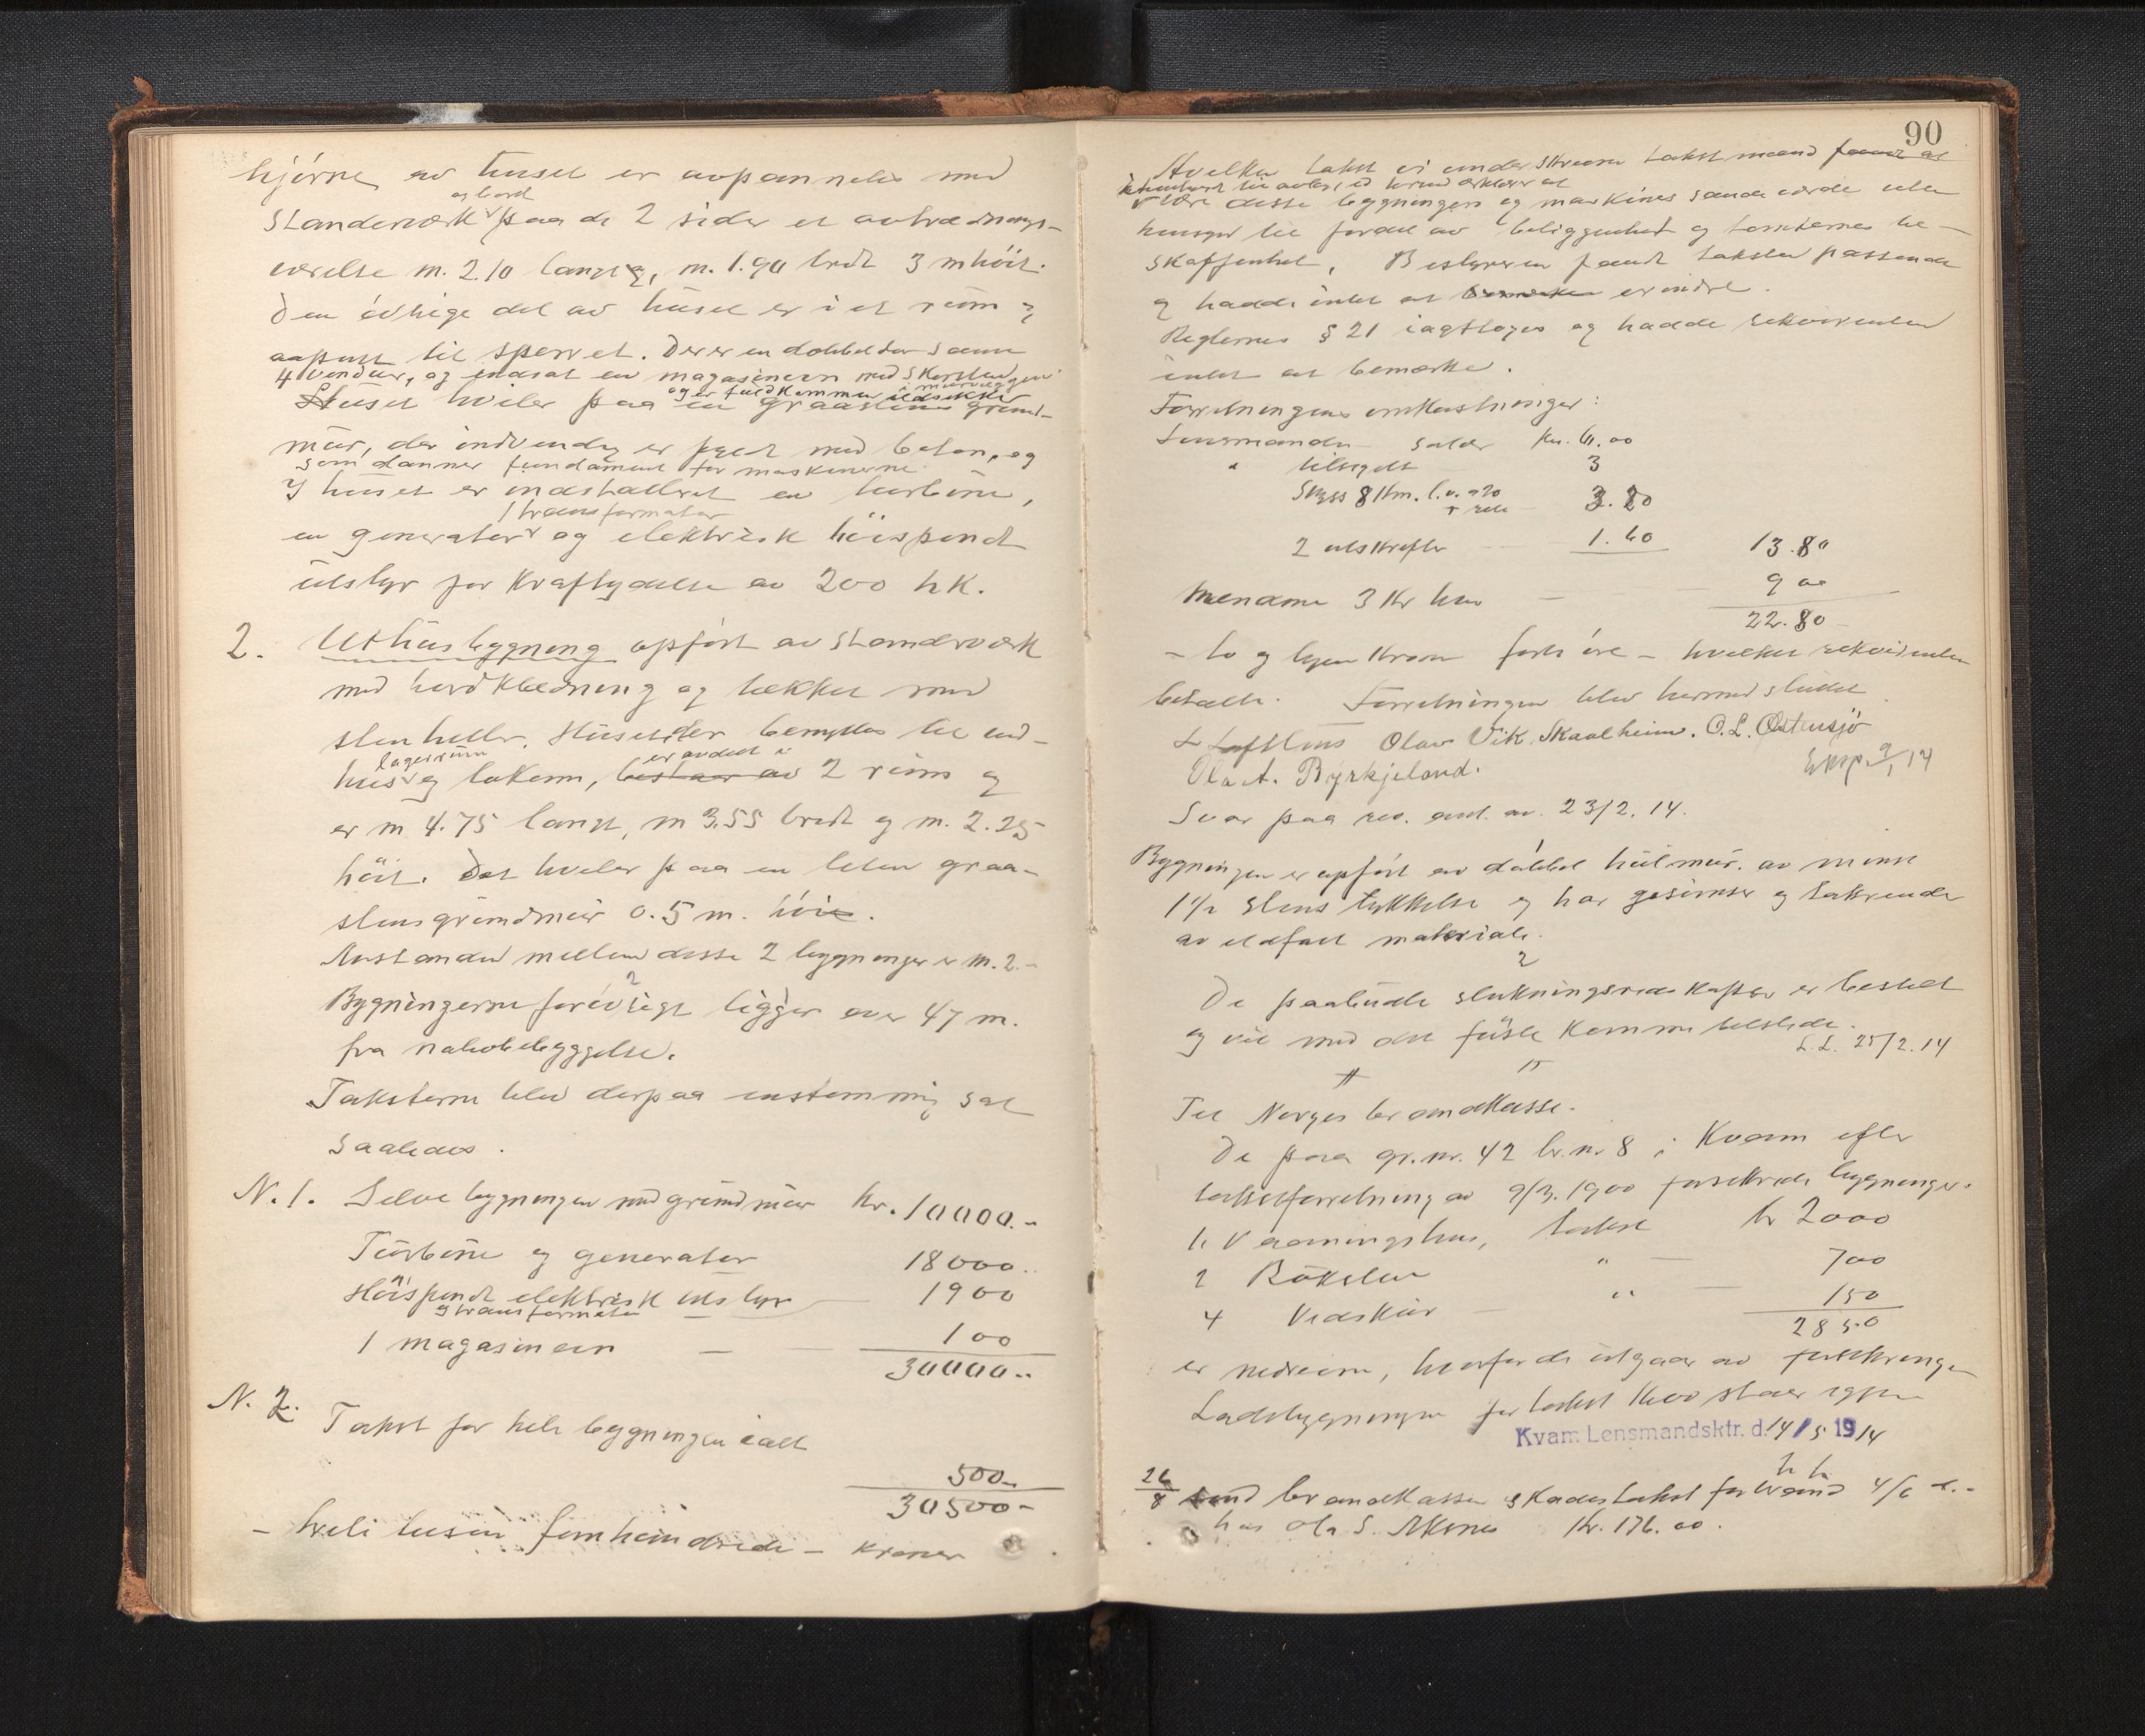 hjørne av huset er avpannelet med
og bord
standerværk paa de 2 sider et avtrædnings-
værelse m. 2.10 langt, m. 1.90 bredt 3 m høit.
Den øvrige del av huset er i et rum og
aapent til sperret. Der er en dobbeltdør samt
4 vinduer, og indsat en magasinovn med skorsten
i murvæggen
og er fuldkommen ildsikker
Huset hviler paa en graastens grund-
mur, der indvendig er fyldt med beton, og
som danner fundament for maskinerne.
I huset er indstalleret en turbine,
1 transformator
en generator og elektrisk høispendt
utstyr for kraftydelse av 200 hk.
2. Uthusbygning opført av standerværk
med bordklædning og tækket med
stenheller. Huset der benyttes til ved-
lagerrum er avdelt i
hus og lokum, bestaar av 2 rums og
er m 4.75 langt, m 3.55 bredt og m. 2.25
høit. Det hviler paa en liten graa-
stensgrundmur 0.5 m. høi.
Avstanden mellem disse 2 bygninger er m. 2.-
Bygningerne forøvrigt ligger over 47 m.
fra nabobebyggelse.
Taksterne blev derpaa enstemmig sat
saaledes.
N. 1. Selve bygningen med grundmur kr. 10000.-
Turbine og generator 18000.-
Høispendt elektrisk utstyr 1900
og transformator
1 magasinovn — 100
30000.-
N. 2. Takst for hele bygningen ialt
500.-
30500-
- treti tusin femhundrede - kroner
90
Hvilken takst vi underskrevne takstmænd fandt at
være disse bygningers og maskiners sande værdi uten
hensyn til fordel av beliggenhet og tomternes be-
skaffenhet. Bestyreren fandt taksten passende
og hadde intet at bemerke erindre.
Reglernes § 21 iagttoges og hadde rekvirenten
intet at bemærke.
Forretningens omkostninger:
Lensmanden salær kr. 6.00
" tilsyelt 3
Skyss 8 km. 3.20
2 utskrifter 1.60 13.80
Mændene 3 kr hver — 9 00
22.80
- to og tyve kroner firti øre - hvilket rekvirenten
betalte. Forretningen blev hermed sluttet
Olav Vik. Skaalheim. O. L. Østensjø
Ola A. Byrkjeland. Eksp. 9/1 14
Svar paa rev. ant. av. 23/2. 14.
Bygningen er opført av dobbel hulmur. av minst
1 1/2 stens tykkelse og har gesimser og takrende
av ildfast materiale.
2
De paabudte slukningsredskaper er bestilt
og vil med det første komme tilstede.
L. L. 25/2. 14
Til Norges brandkasse.
De paa gr. nr. 42 br. n. 8 i Kvam efter
takstforretning av 9/3. 1900 forsikrede bygninger.
1. Vaaningshus, takst kr 2000
2 Bökeler " — 700
4 Vedskur — " — 150
2850
er nedrevne, hvorfor de utgaar av forsikringen
Ladebygningen for takst 1600 staar igjen
Kvam Lensmandsktr. d. 14/5 1914
26/8 send brandkassen skadestakst for brand 4/6 d.-
hos Ola S. Aksnes kr. 176.00.